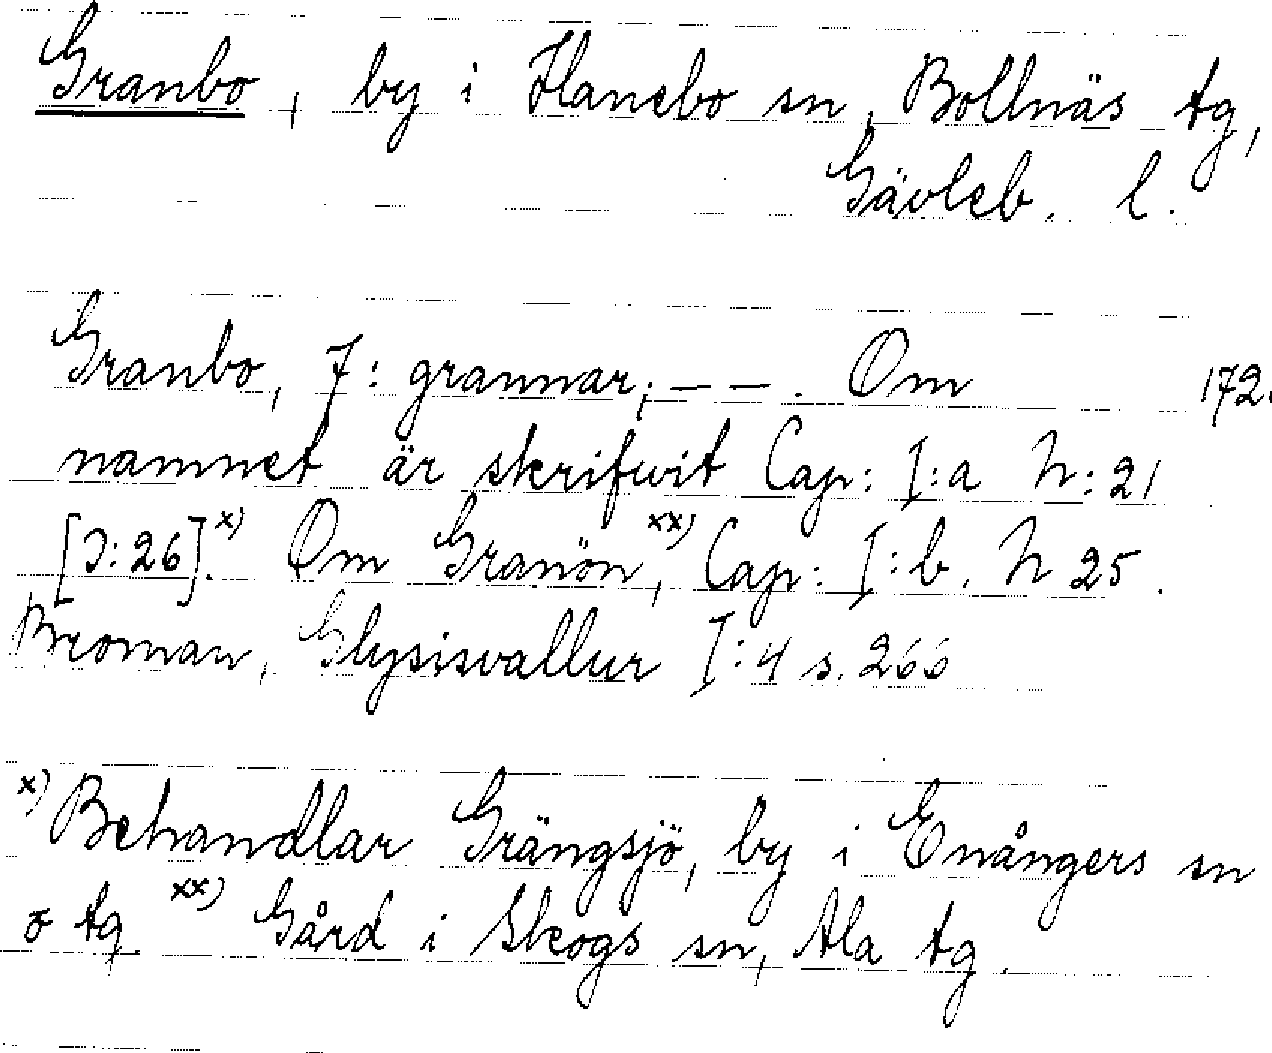 Granbo, by i Hanebo sn, Bollnäs tg,
Gävleb. l.
Granbo, 7: grannar; — —. Om 172.
namnet är skrifwit Cap: I:a N:21
[I:26].x) Om Granön,xx) Cap: I:b. N 25.
Broman, Glysisvallur I:4 s. 266
x) Behandlar Grängsjö, by i Enångers sn
o tg xx) Gård i Skogs sn, Ala tg.